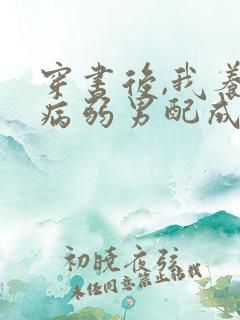 穿书后,我养
病弱男配成
初晓夜弦
未经同意禁止转载